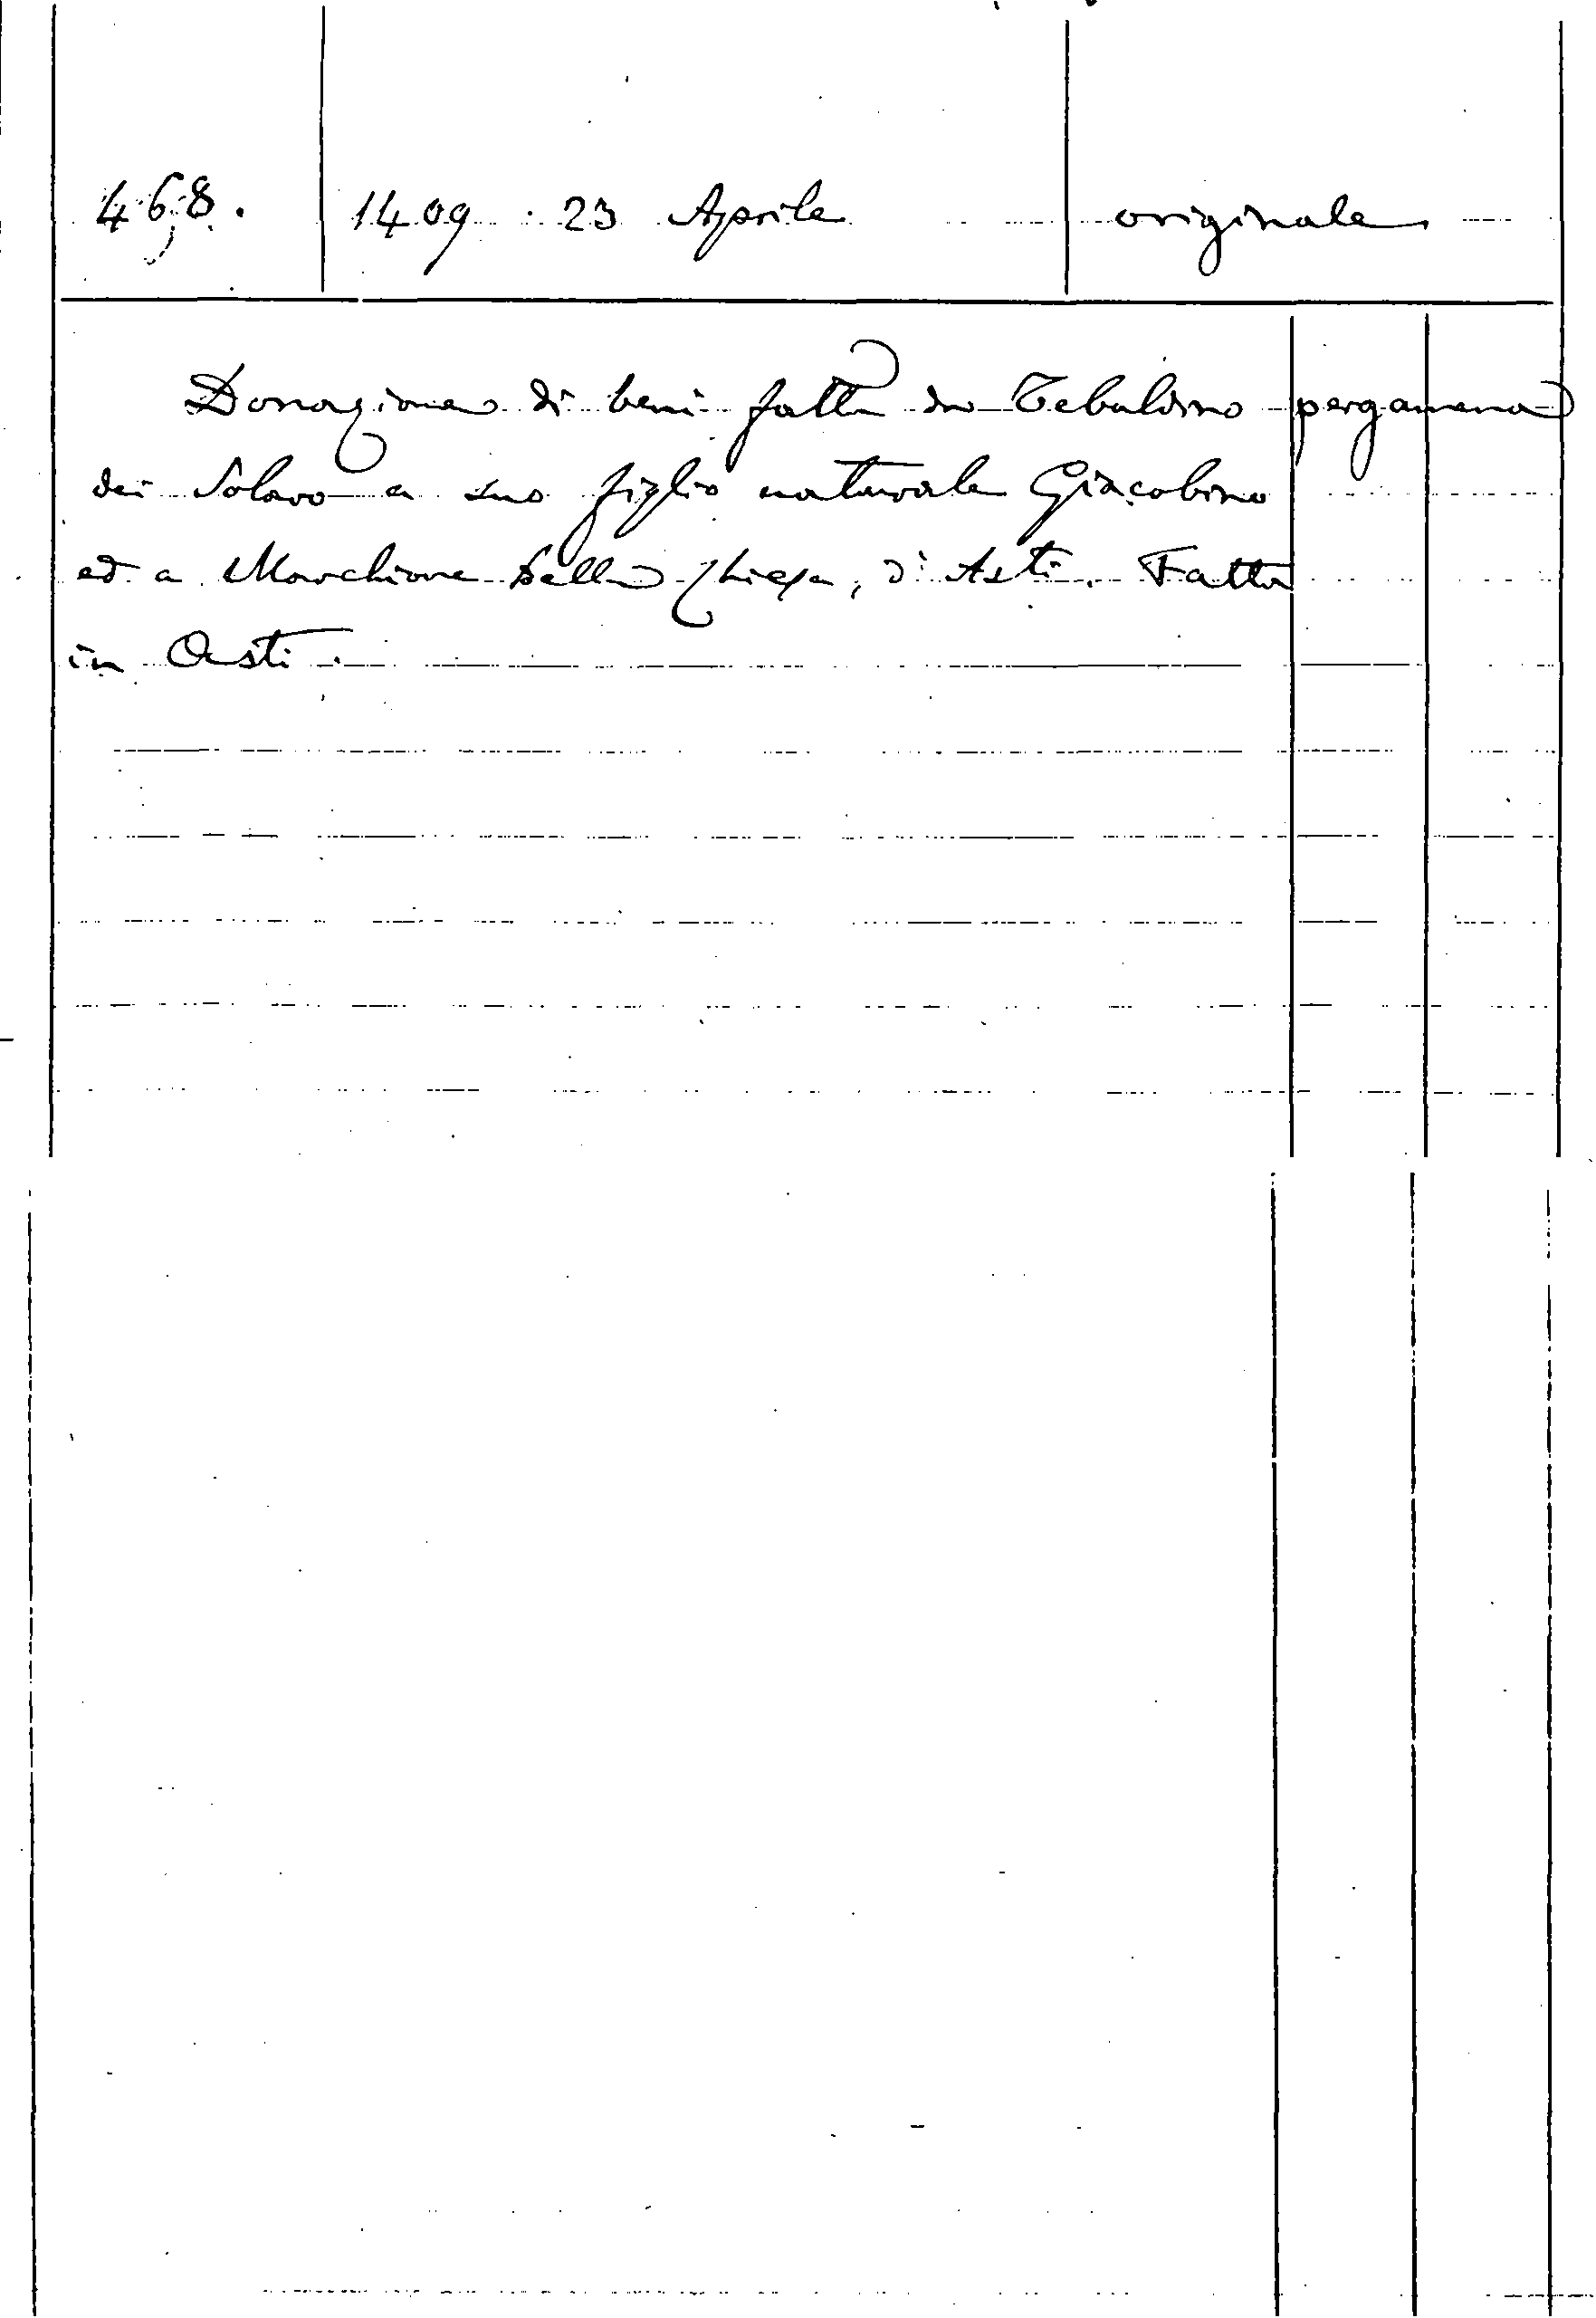 468. 1409 . 23 Aprile originale
Donazione di beni fatta da Tebaldino pergamena
dei Solaro a suo figlio naturale Giacobino
ed a Marchione della Chiesa, d'Asti. Fatta
in Asti.